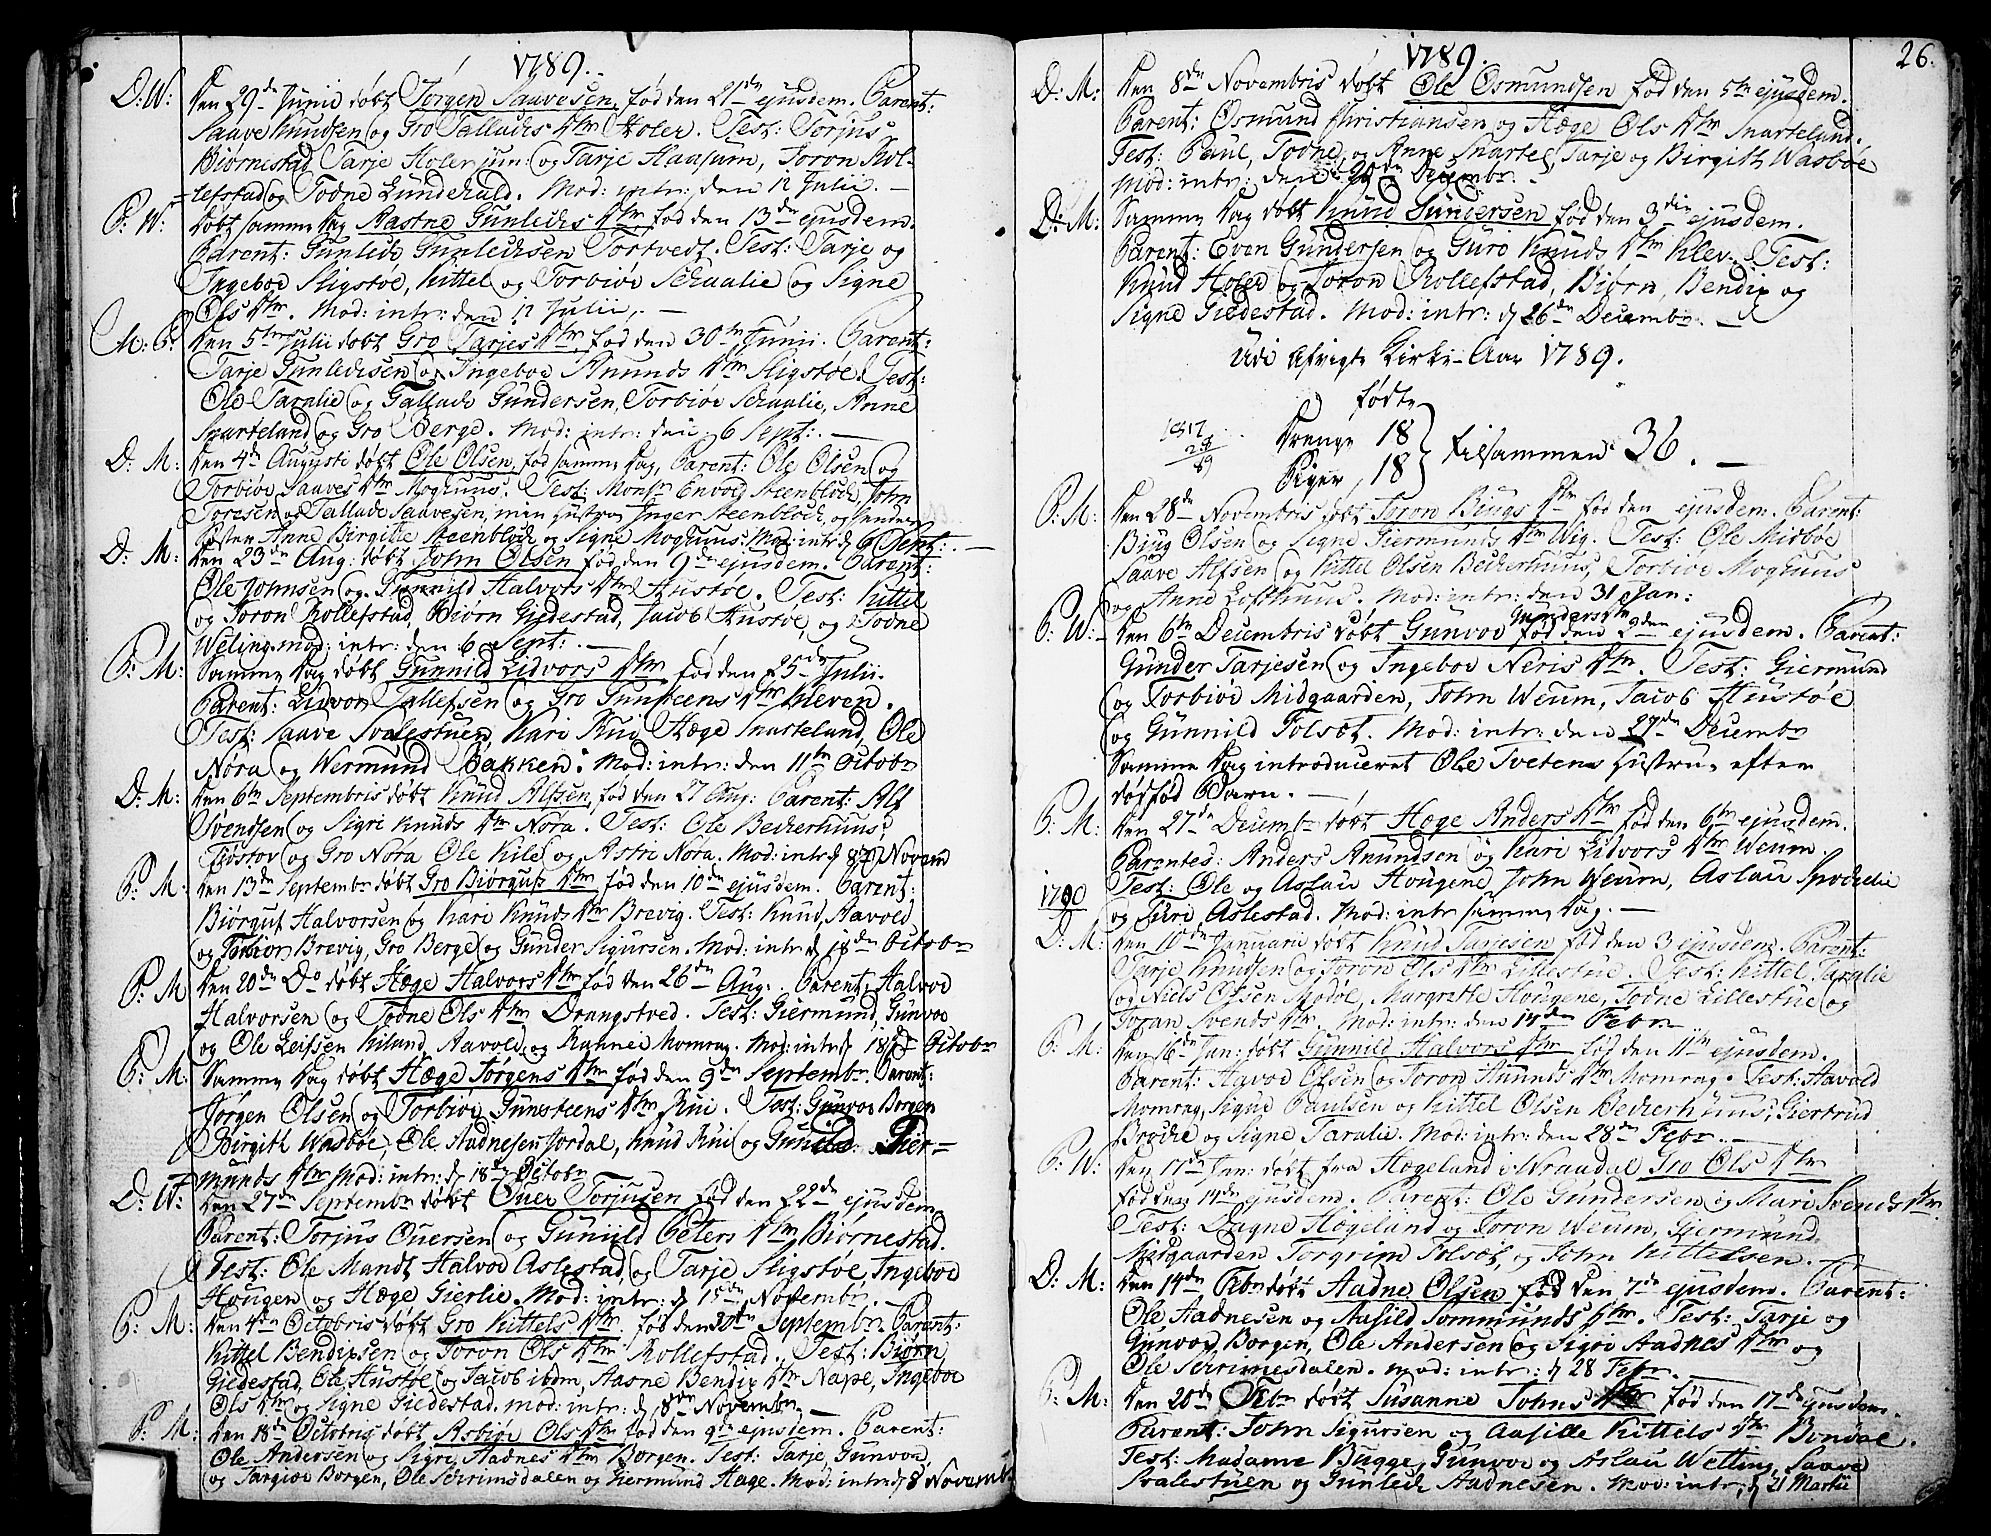 1789.
D: W: Den 29de Junii døbt Jørgen Saavesen, fød den 21de ejusdem. Parent:
Saave Knudsen og Gro Tallachs Dtr Holer. Test: Torjus
Biørnestad, Tarje Holer jun: og Tarje Haasum, Joron Rol-
lefstad og Todne Lundekald. Mod: intr: den 12 Julii. —
P: W: Døbt samme Dag Aasne Gunleiks Dtr fød den 13de ejusdem.
Parent: Gunleik Gunleiksen Tortvedt. Test: Tarje og
Ingeboe Sligstøe, Kittel og Torbiør Schaalie og Signe
Ols Dtr. Mod: intr: den 12 Julii. —
M: P: Den 5te Julii døbt Gro Tarjes Dtr, fød den 30te Junii. Parent:
Tarje Gunleiksen og Ingeboe Anunds Dtr Sligstøe. Test:
Ole Taralie og Tallach Gundersen, Torbiør Schaalie, Anne
Snarteland og Gro Berge. Mod: intr: den 6 Sept: —
D: M: Den 4de Augusti døbt Ole Olsen, fød samme Dag, Parent: Ole Olsen og
Torbiør Saaves Dtr Moghuus. Test: Monsr Envold Steenbloch, John
Joresen og Tallach Saavesen, min Hustru Inger Steenbloch, og hendes
Søster Anne Birgitte Steenbloch og Signe Moghuus. Mod: intr: d 6 Sept: —
D: M: Den 23de Aug: døbt John Olsen fød den 9de ejusdem. Parent:
Ole Johnsen og Gunnild Halvors Dtr Hustøe. Test: Kittel
og Joron Rollefstad, Biørn Giedestad, Jacob Hustøe, og Todne
Weting. mod: intr: den 6 Sept: —
P: M: Samme Dag døbt Gunnild Lidvors Dtr, fød den 25de Julii.
Parent: Lidvor Tallefsen og Gro Gunsteens Dtr Kleven.
Test: Saave Svalestuen, Kari Rui, Hæge Snarteland, Ole
Nora og Wermund Bakken. Mod: intr: den 11te Octobr
D: M: Den 6te Septembris døbt Knud Alfsen, fød den 27 Aug: Parent: Alf
Svendsen og Sigri Knuds Dtr Nora. Test: Ole Beckerhuus,
Tiøstov og Gro Nora, Ole Kile og Astri Nora. Mod: intr: d 8de Novem
P: M: Den 13de Septembr døbt Gro Biørgufs Dtr fød den 10de ejusdem. Parent:
Biørguf Halvorsen og Kari Knuds Dtr Brevig. Test: Knud, Aavold
og Brevig, Gro Berge og Gunder Sigursen. Mod: intr: d 18de Octobr
P: M: Den 20de Do døbt Hæge Halvors Dtr fød den 26de Aug: Parent: Halvor
Halvorsen og Todne Ols Dtr Drangstved. Test: Giermund, Gunvor
og Ole Leifsen Kiland, Aavold og Rahnei Momrag. Mod: intr: d 18de Octobr
P: M: Samme Dag døbt Hæge Jørgens Dtr fød den 9de Septembr. Parent:
Jørgen Olsen og Torbiør Gunsteens Dtr Rui. Test: Gunvor Borgen
Birgith Wasbøe, Ole Aadnesen Jordal, Knud Rui og Gunild Gier-
munds Dtr Mod: intr: d 18de Octobr
D: W: Den 27de Septembr døbt Ouer Torjusen fød den 22de ejusdem.
Parent: Torjus Ouersen og Guniild Peters Dtr Biørnestad.
Test: Ole Mandt, Halvor Aslestad, og Tarje Sligstøe, Ingeboe
Hougen og Hæge Gierlie. Mod: intr: d 15de Novembr. —
P: M: Den 4de Octobris døbt Gro Kittels Dtr, fød den 20de Septembr. Parent:
Kittel Bendixsen og Joron Ols Dtr Rollefstad. Test: Biørn
Giedestad, Ole Hustøe og Jacob ibdm, Aasne Bendix Dtr Nape, Ingeboe
Ols Dtr og Signe Giedestad. mod: intr: d 8de Novembr. —
P: M: Den 18de Octobris døbt Asbiør Ols Dtr fød den 9de ejusdem. Parent:
Ole Andersen og Sigri Aadnes Dtr Borgen. Test: Tarje, Gunvor,
og Targior Borgen, Ole Schrimsdalen og Giermund Hage. Mod: intr: d 8 Novemb:
1789.
26.
D: M: Den 8de Novembris døbt Ole Osmundsen fød den 5te ejusdem.
Parent: Osmund Christiansen og Hæge Ols Dtr Snarteland.
Test: Paul, Todne og Anne Snartel, Tarje og Birgith Wasbøe
Mod: intr: den 20de Decembr. —
D: M: Samme Dag døbt Knud Gundersen fød den 3die ejusdem.
Parent: Even Gundersen og Guro Knuds Dtr Klev. Test:
Knud Holer og Joron Rollefstad, Biørn, Bendix og
Signe Giedestad. Mod: intr: d 26de Decembr. —
Udi afvigte Kirke-Aar 1789.
fødte
Drenge 18
Piger, 18
tilsammen 36. —
1817
28
89
P: M: Den 28de Novembris døbt Joron Biugs Dtr fød den ejusdem. Parent:
Biug Olsen og Signe Giermunds Dtr Wig. Test: Ole Midbøe
Saave Alfsen og Kittel Olsen Beckerhuus, Torbiør Moghuus
og Anne Lofthuus. Mod: intr: den 31 Jan:
P: W: Den 6te Decembris døbt Gunvor Gunders Dtr fød den 2den ejusdem. Parent:
Gunder Tarjesen og Ingeboe Neris Dtr. Test: Giermund
og Torbiør Midgaarden, John Weum, Jacob Hustøe
og Gunnild Folsøt. Mod: intr: den 27de Decembr
Samme Dag introduceret Ole Tvetens Hustrue efter
dødfød Barn. —
P: M: Den 27de Decembr døbt Hæge Anders Dtr fød den 6te ejusdem.
Parentes: Anders Anundsen og Kari Lidvors Dtr Weum.
Test: Ole og Aslau Hougene, John Weum, Aslau Sprodelie
og Juri Aslestad. Mod: intr samme Dag. —
1790
D: M: Den 10de Januarii døbt Knud Tarjesen fød den 3 ejusdem. Parent:
Tarje Knudsen og Joron Ols Dtr Lillestue. Test: Kittel Taralie
og Niels Olsen Modøl, Margrethe Hougene, Todne Lillestue og
Joran Svends Dtr. Mod: intr: den 14de Febr.
P: M: Den 16de Jan: døbt Gunnild Halvors Dtr fød den 11te ejusdem.
Parent: Havor Olsen og Joron Anunds Dtr Momrag. Test: Aavold
Momrag, Signe Paulsen og Kittel Olsen Beckerhuus, Giertrud
Brødie og Signe Taralie. Mod: intr: den 28de Febr. —
P: W: Den 17de Jan: døbt fra Hægeland i Wraadal Gro Ols Dtr
fød den 14de ejusdem. Parent: Ole Gundersen og Mari Svends Dtr.
Test: Dagne Hægeland og Joron Weum, Giermund
Midgaarden Torgrim Folsøt, og John Kittelsen.
D: M: Den 14de Febr døbt Aadne Olsen fød den 7de ejusdem. Parent:
Ole Aadnesen og Aasild Sommunds Dtr. Test: Tarje og
Gunvor Borgen, Ole Andersen og Sigri Aadnes Dtr og
Ole Schrimesdalen. mod: intr: d 28 Febr.
P: M: Den 20de Febr døbt Susanne Johns Dtr fød den 17de ejusdem.
Parent: John Sigursen og Aasille Kittels Dtr Bondal.
Test: Madame Bugge, Gunvor og Aslau Wetting, Saave
Svalestuen og Gunleik Aadnesen. Mod: intr: d 21 Martii